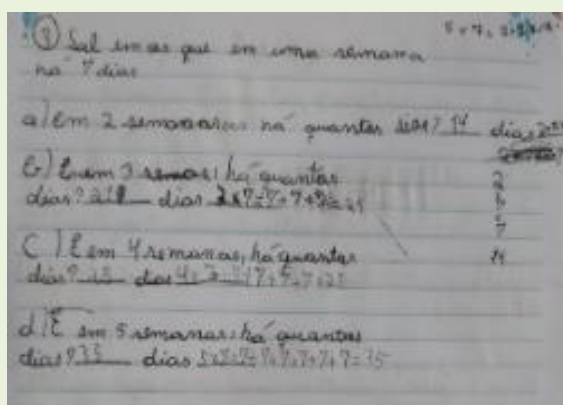 ③ Sabemos que em uma semana
há 7 dias
a) Em 2 semanas, há quantos dias? 14 dias
b) E em 3 semanas, há quantos
dias? 21 dias 3x7=7+7+7=21
c) E em 4 semanas, há quantos
dias? 28 dias 4x7=7+7+7+7=28
d) E em 5 semanas, há quantos
dias? 35 dias 5x7=7+7+7+7+7=35